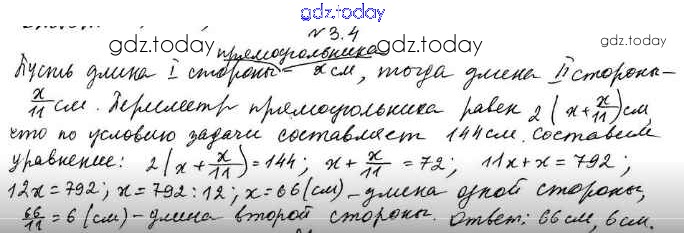 gdz.today
№ 3.4
gdz.today gdz.today gdz.today
прямоугольника
Пусть длина I стороны – x см, тогда длина II стороны –
x/11 см. Периметр прямоугольника равен 2(x + x/11) см,
что по условию задачи составляет 144 см. Составим
уравнение: 2(x + x/11) = 144; x + x/11 = 72; 11x + x = 792;
12x = 792; x = 792 : 12; x = 66 (см) – длина одной стороны,
66/11 = 6 (см) – длина второй стороны. Ответ: 66 см, 6 см.